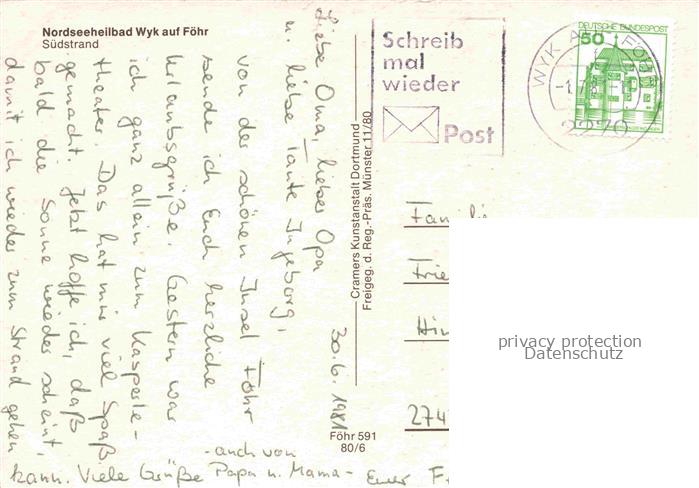 Nordseeheilbad Wyk auf Föhr
Südstrand
30.6.1981
Liebe Oma, lieber Opa
u. liebe Tante Ingeborg,
von der schönen Insel Föhr
sende ich Euch herzliche
Urlaubsgrüße. Gestern war
ich ganz allein zum Kasperle-
theater. Das hat mir viel Spaß
gemacht. Jetzt hoffe ich, daß
bald die Sonne wieder scheint,
damit ich wieder zum Strand gehen
kann. Viele Grüße
- auch von
Papa u. Mama - Euer
Cramers Kunstanstalt Dortmund
Freigeg. d. Reg.-Präs. Münster 11/80
Föhr 591
80/6
Schreib
mal
wieder
Post
DEUTSCHE BUNDESPOST
50
WYK AUF FÖHR
2270
Familie
Frie
Hin
274
privacy protection
Datenschutz